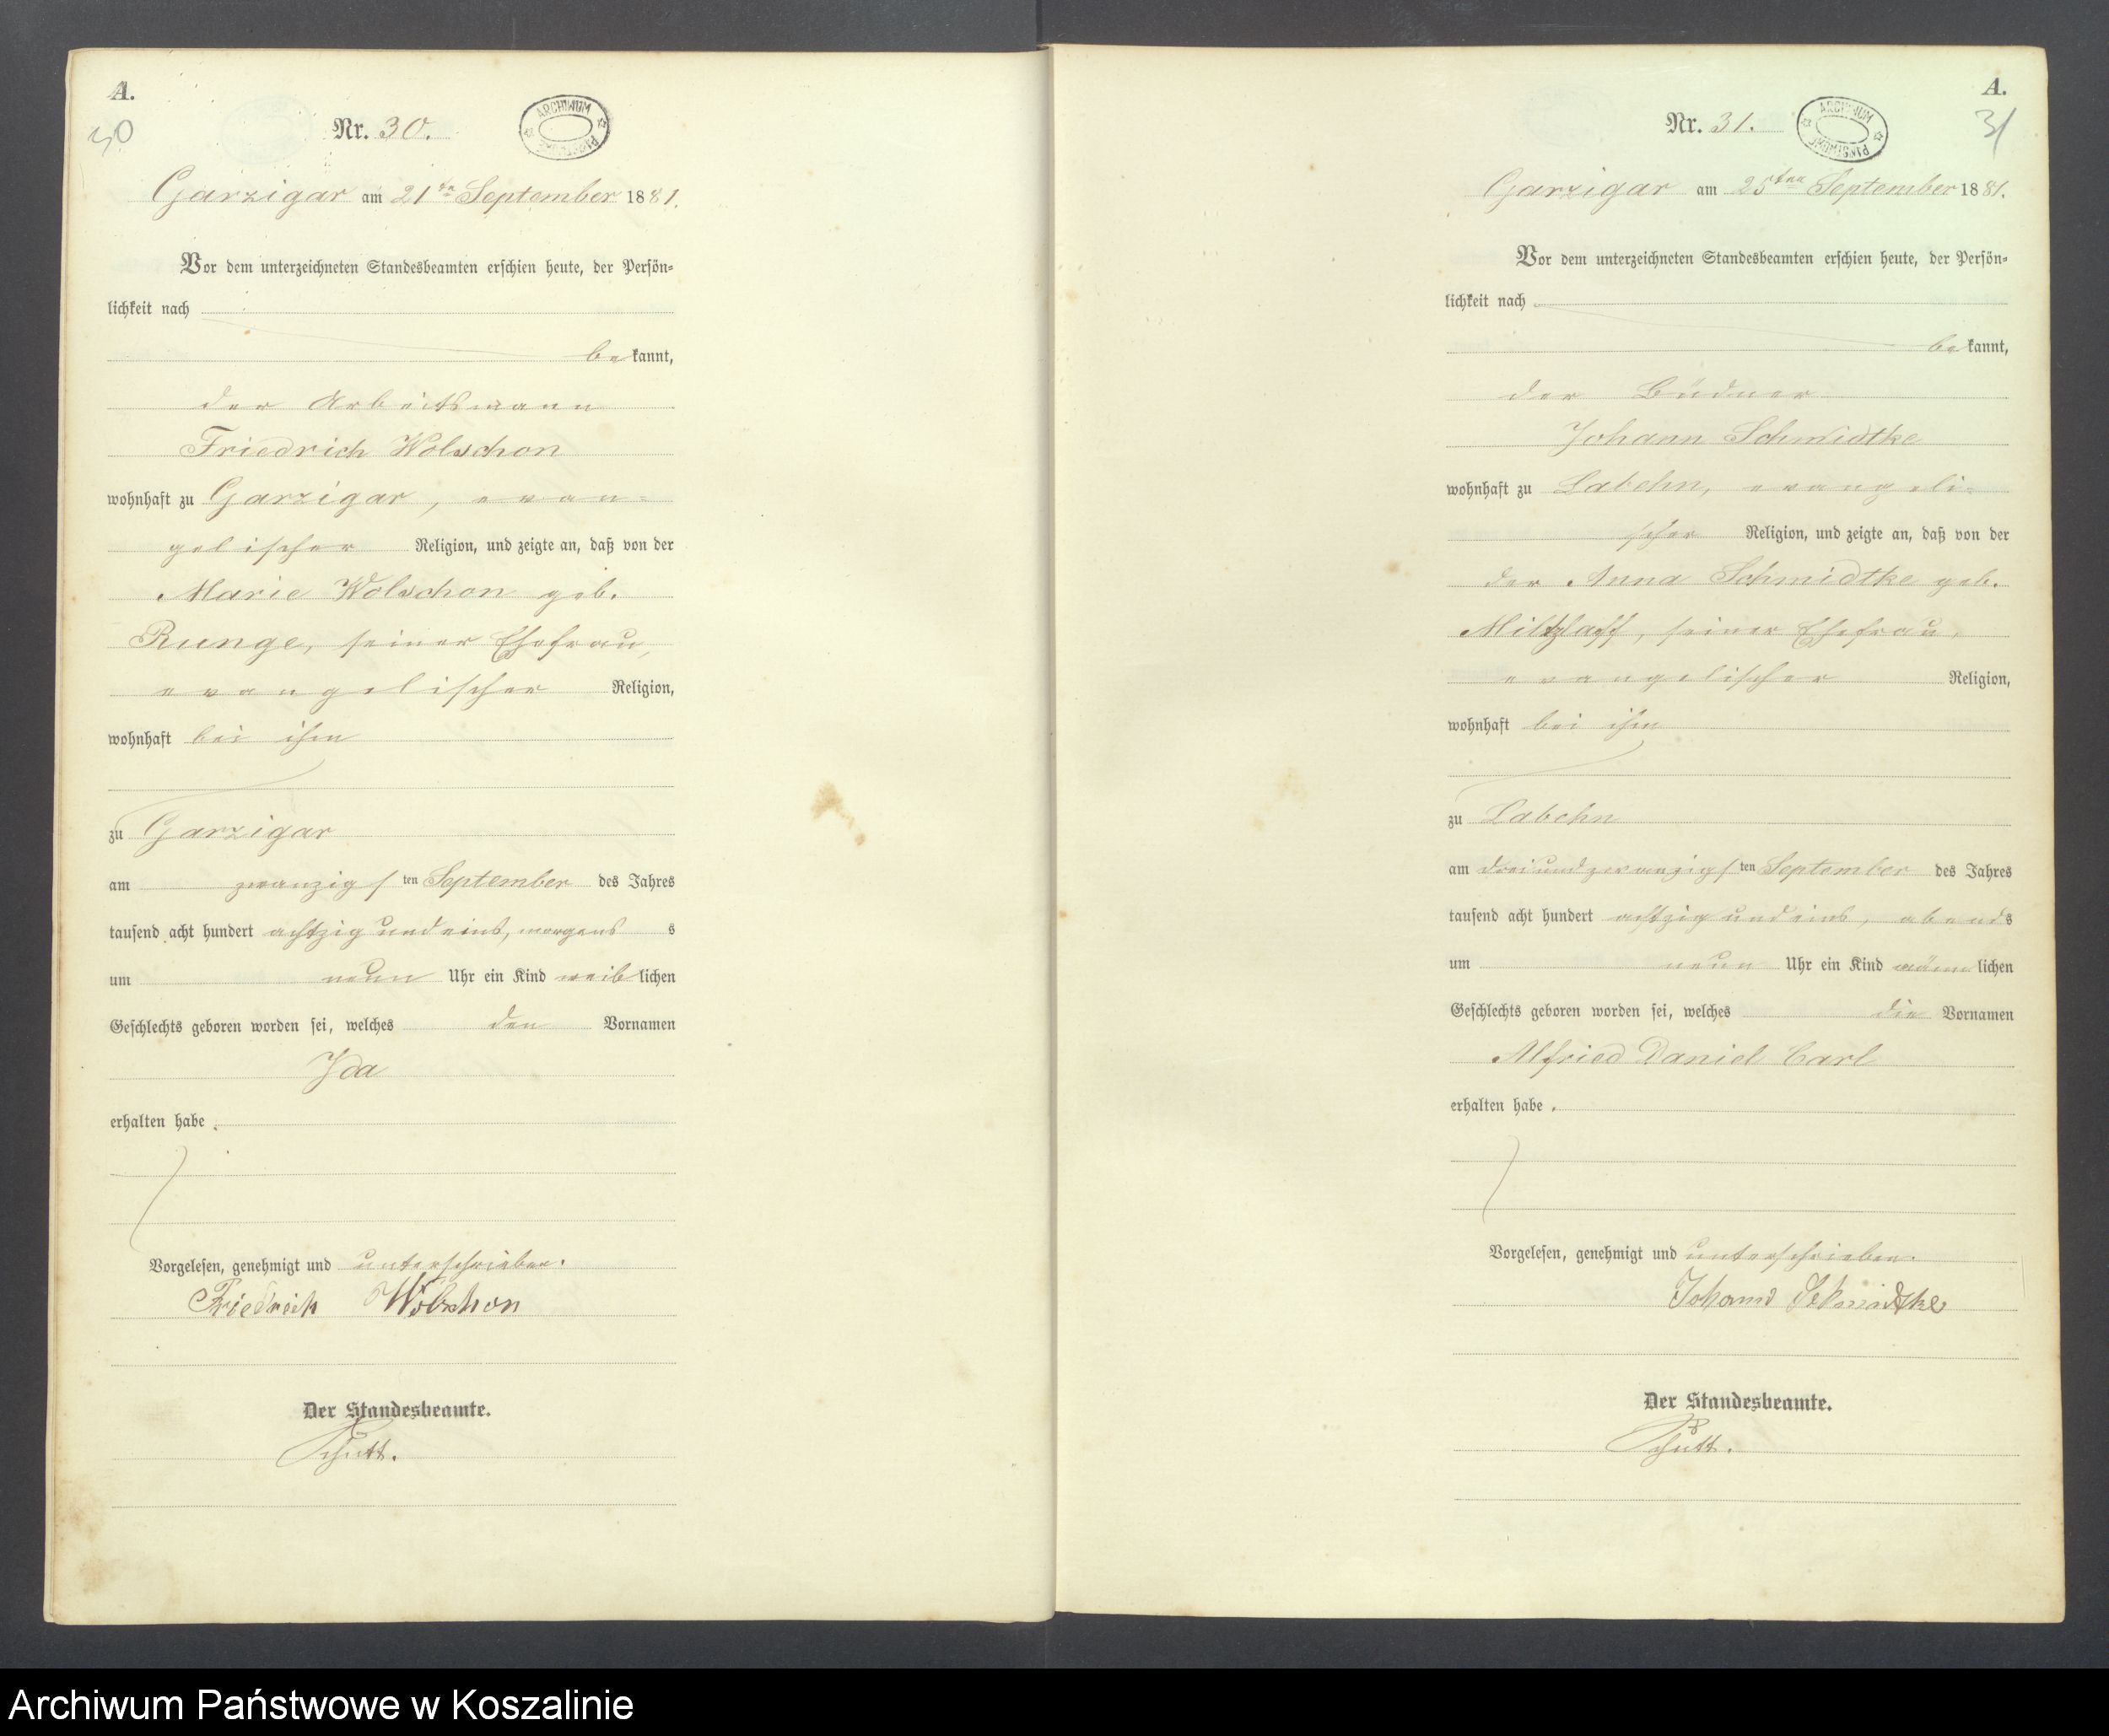 A.
30
Nr. 30.
ARCHIWUM PAŃSTWOWE
Garzigar am 21ten September 1881.
Vor dem unterzeichneten Standesbeamten erschien heute, der Persön-
lichkeit nach
bekannt,
der Arbeitsmann
Friedrich Wolschon
wohnhaft zu Garzigar, evan-
gelischer Religion, und zeigte an, daß von der
Marie Wolschon geb.
Runge, seiner Ehefrau,
evangelischer Religion,
wohnhaft bei ihm
zu Garzigar
am zwanzigsten September des Jahres
tausend acht hundert achtzig und eins, morgens s
um neun Uhr ein Kind weiblichen
Geschlechts geboren worden sei, welches den Vornamen
Ida
erhalten habe.
Vorgelesen, genehmigt und unterschrieben.
Friedrich Wolschon
Der Standesbeamte.
Schutt.
A.
31
Nr. 31.
ARCHIWUM PAŃSTWOWE
Garzigar am 25ten September 1881.
Vor dem unterzeichneten Standesbeamten erschien heute, der Persön-
lichkeit nach
bekannt,
der Büdner
Johann Schmidtke
wohnhaft zu Labehn, evangeli-
scher Religion, und zeigte an, daß von der
der Anna Schmidtke geb.
Miltzlaff, seiner Ehefrau,
evangelischer Religion,
wohnhaft bei ihm
zu Labehn
am dreiundzwanzigsten September des Jahres
tausend acht hundert achtzig und eins, abends
um neun Uhr ein Kind männlichen
Geschlechts geboren worden sei, welches die Vornamen
Alfried Daniel Carl
erhalten habe.
Vorgelesen, genehmigt und unterschrieben.
Johann Schmidtke
Der Standesbeamte.
Schutt.
Archiwum Państwowe w Koszalinie